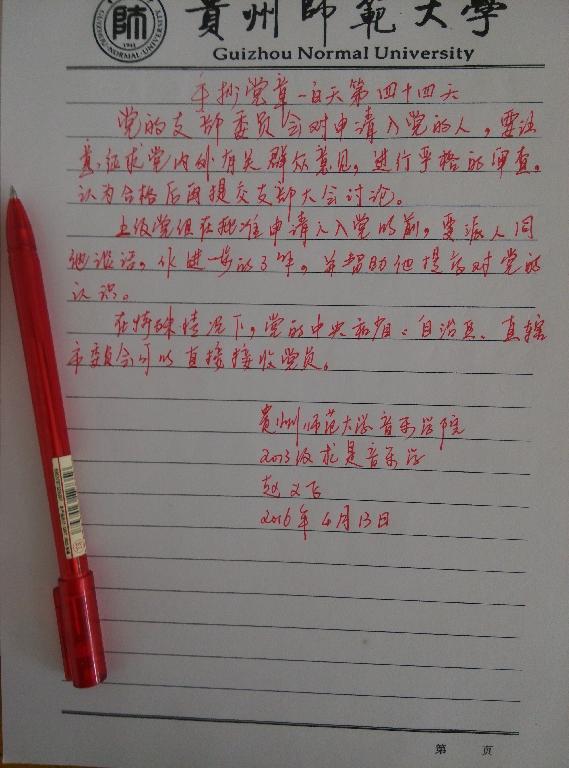 貴州師範大學
Guizhou Normal University
手抄党章一百天第四十四天
党的支部委员会对申请入党的人，要注
意征求党内外有关群众意见，进行严格的审查，
认为合格后再提交支部大会讨论。
上级党组在批准申请人入党以前，要派人同
他谈话，作进一步的了解，并帮助他提高对党的
认识。
在特殊情况下，党的中央和省、自治区、直辖
市委员会可以直接接收党员。
贵州师范大学音乐学院
2013级求是音乐学
赵文飞
2016年4月13日
第 页